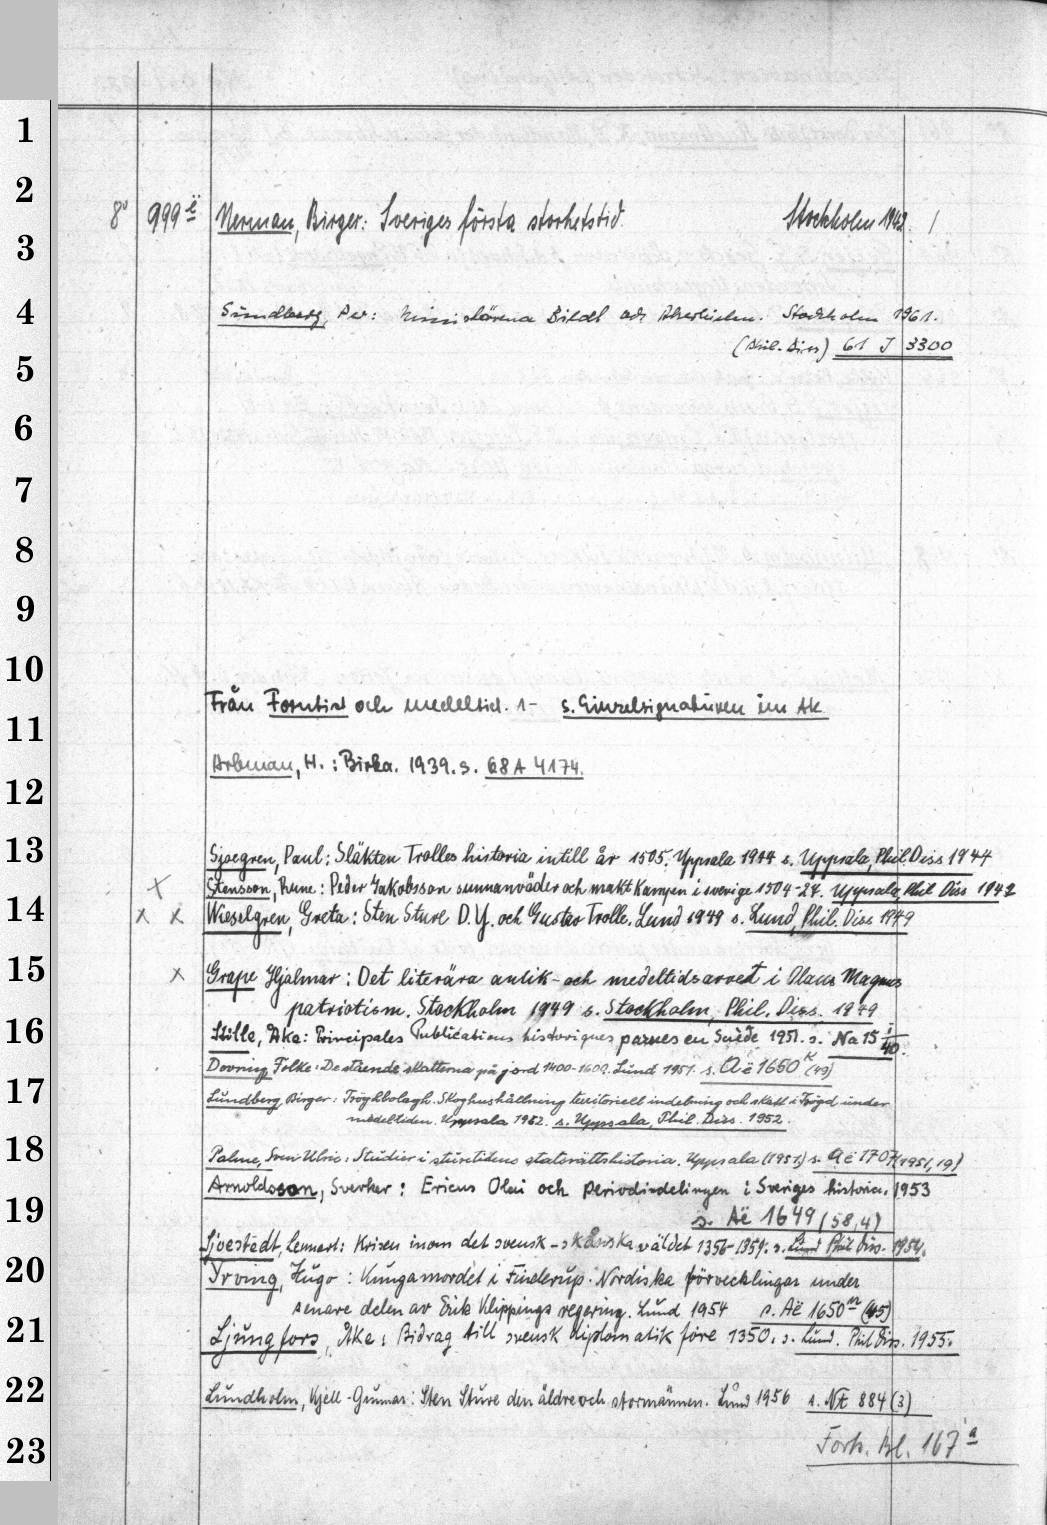 1
2
8° 999 e Nerman, Birger: Sveriges första storhetstid. Stockholm 1942. /
3
4 Sundberg, Per: Ministärena Bildt och Åkerhielm. Stockholm 1961.
(Phil. Diss) 61 J 3300
5
6
7
8
9
10
Från Forntid och medeltid. 1- s. Einzelsignaturen im AK
11
Arbman, H.: Birka. 1939. s. 68 A 4174.
12
13 Sjoegren, Paul: Släkten Trolles historia intill år 1505. Uppsala 1944 s. Uppsala, Phil. Diss 1944
x Stensson, Rune: Peder Jakobsson sunnanväder och maktkampen i sverige 1504-24. Uppsala, Phil Diss 1942
14 x x Wieselgren, Greta: Sten Sture D.Y. och Gustav Trolle. Lund 1949 s. Lund, Phil. Diss 1949
15 x Grape Hjalmar: Det literära antik- och medeltidsarvet i Olaus Magnus
patriotism. Stockholm 1949 s. Stockholm, Phil. Diss. 1949
16 Stille, Åke: Principales Publications historiques parues en Suède 1951. s. Na 15 i/40.
Dovring Folke: De stående skatterna på jord 1400-1600. Lund 1951. s. Aë 1650 k (49)
17 Lundberg, Birger: Tröghbolagh. Skoghushållning territoriell indelning och skatt i Trögd under
medeltiden. Uppsala 1952. s. Uppsala, Phil. Diss. 1952.
18 Palme, Sven Ulric: Studier i sturetidens statsrättshistoria. Uppsala (1951) s. Aë 1707 (1951,19)
Arnoldsson, Sverker: Ericus Olai och periodindelingen i Sveriges historia. 1953
19 s. Aë 1649 (58,4)
Sjvestedt, Lennart: Krisen inom det svensk-skånska väldet 1356-1359. s. Lund Phil Diss. 1954.
20 Yrving, Hugo: Kungamordet i Finderup. Nordiska förvecklingar under
senare delen av Erik Klippings regering. Lund 1954 s. Aë 1650 m (45)
21 Ljungfors, Åke: Bidrag till svensk diplomatik före 1350. s. Lund. Phil Diss. 1955.
22 Lundholm, Kjell-Gunnar: Sten Sture den äldre och stormännen. Lund 1956 s. NE 884 (3)
23 Forts. Bl. 167 a